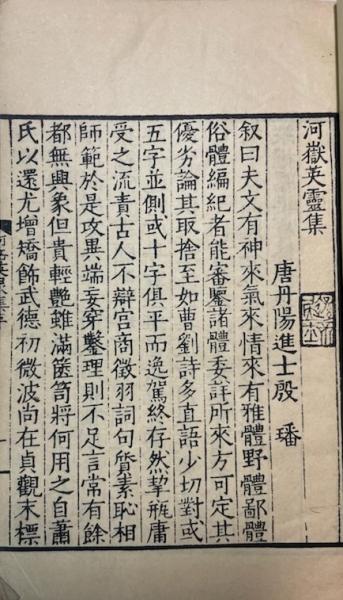 河嶽英靈集
唐丹陽進士殷璠
叙曰夫文有神來氣來情來有雅體野體鄙體
俗體編紀者能審鑒諸體委詳所來方可定其
優劣論其取捨至如曹劉詩多直語少切對或
五字並側或十字俱平而逸駕終存然挈瓶庸
受之流責古人不辯宮商徵羽詞句質素恥相
師範於是攻異端妄穿鑿理則不足言常有餘
都無興象但貴輕艷雖滿篋笥將何用之自蕭
氏以還尤增矯飾武德初微波尚在貞觀末標